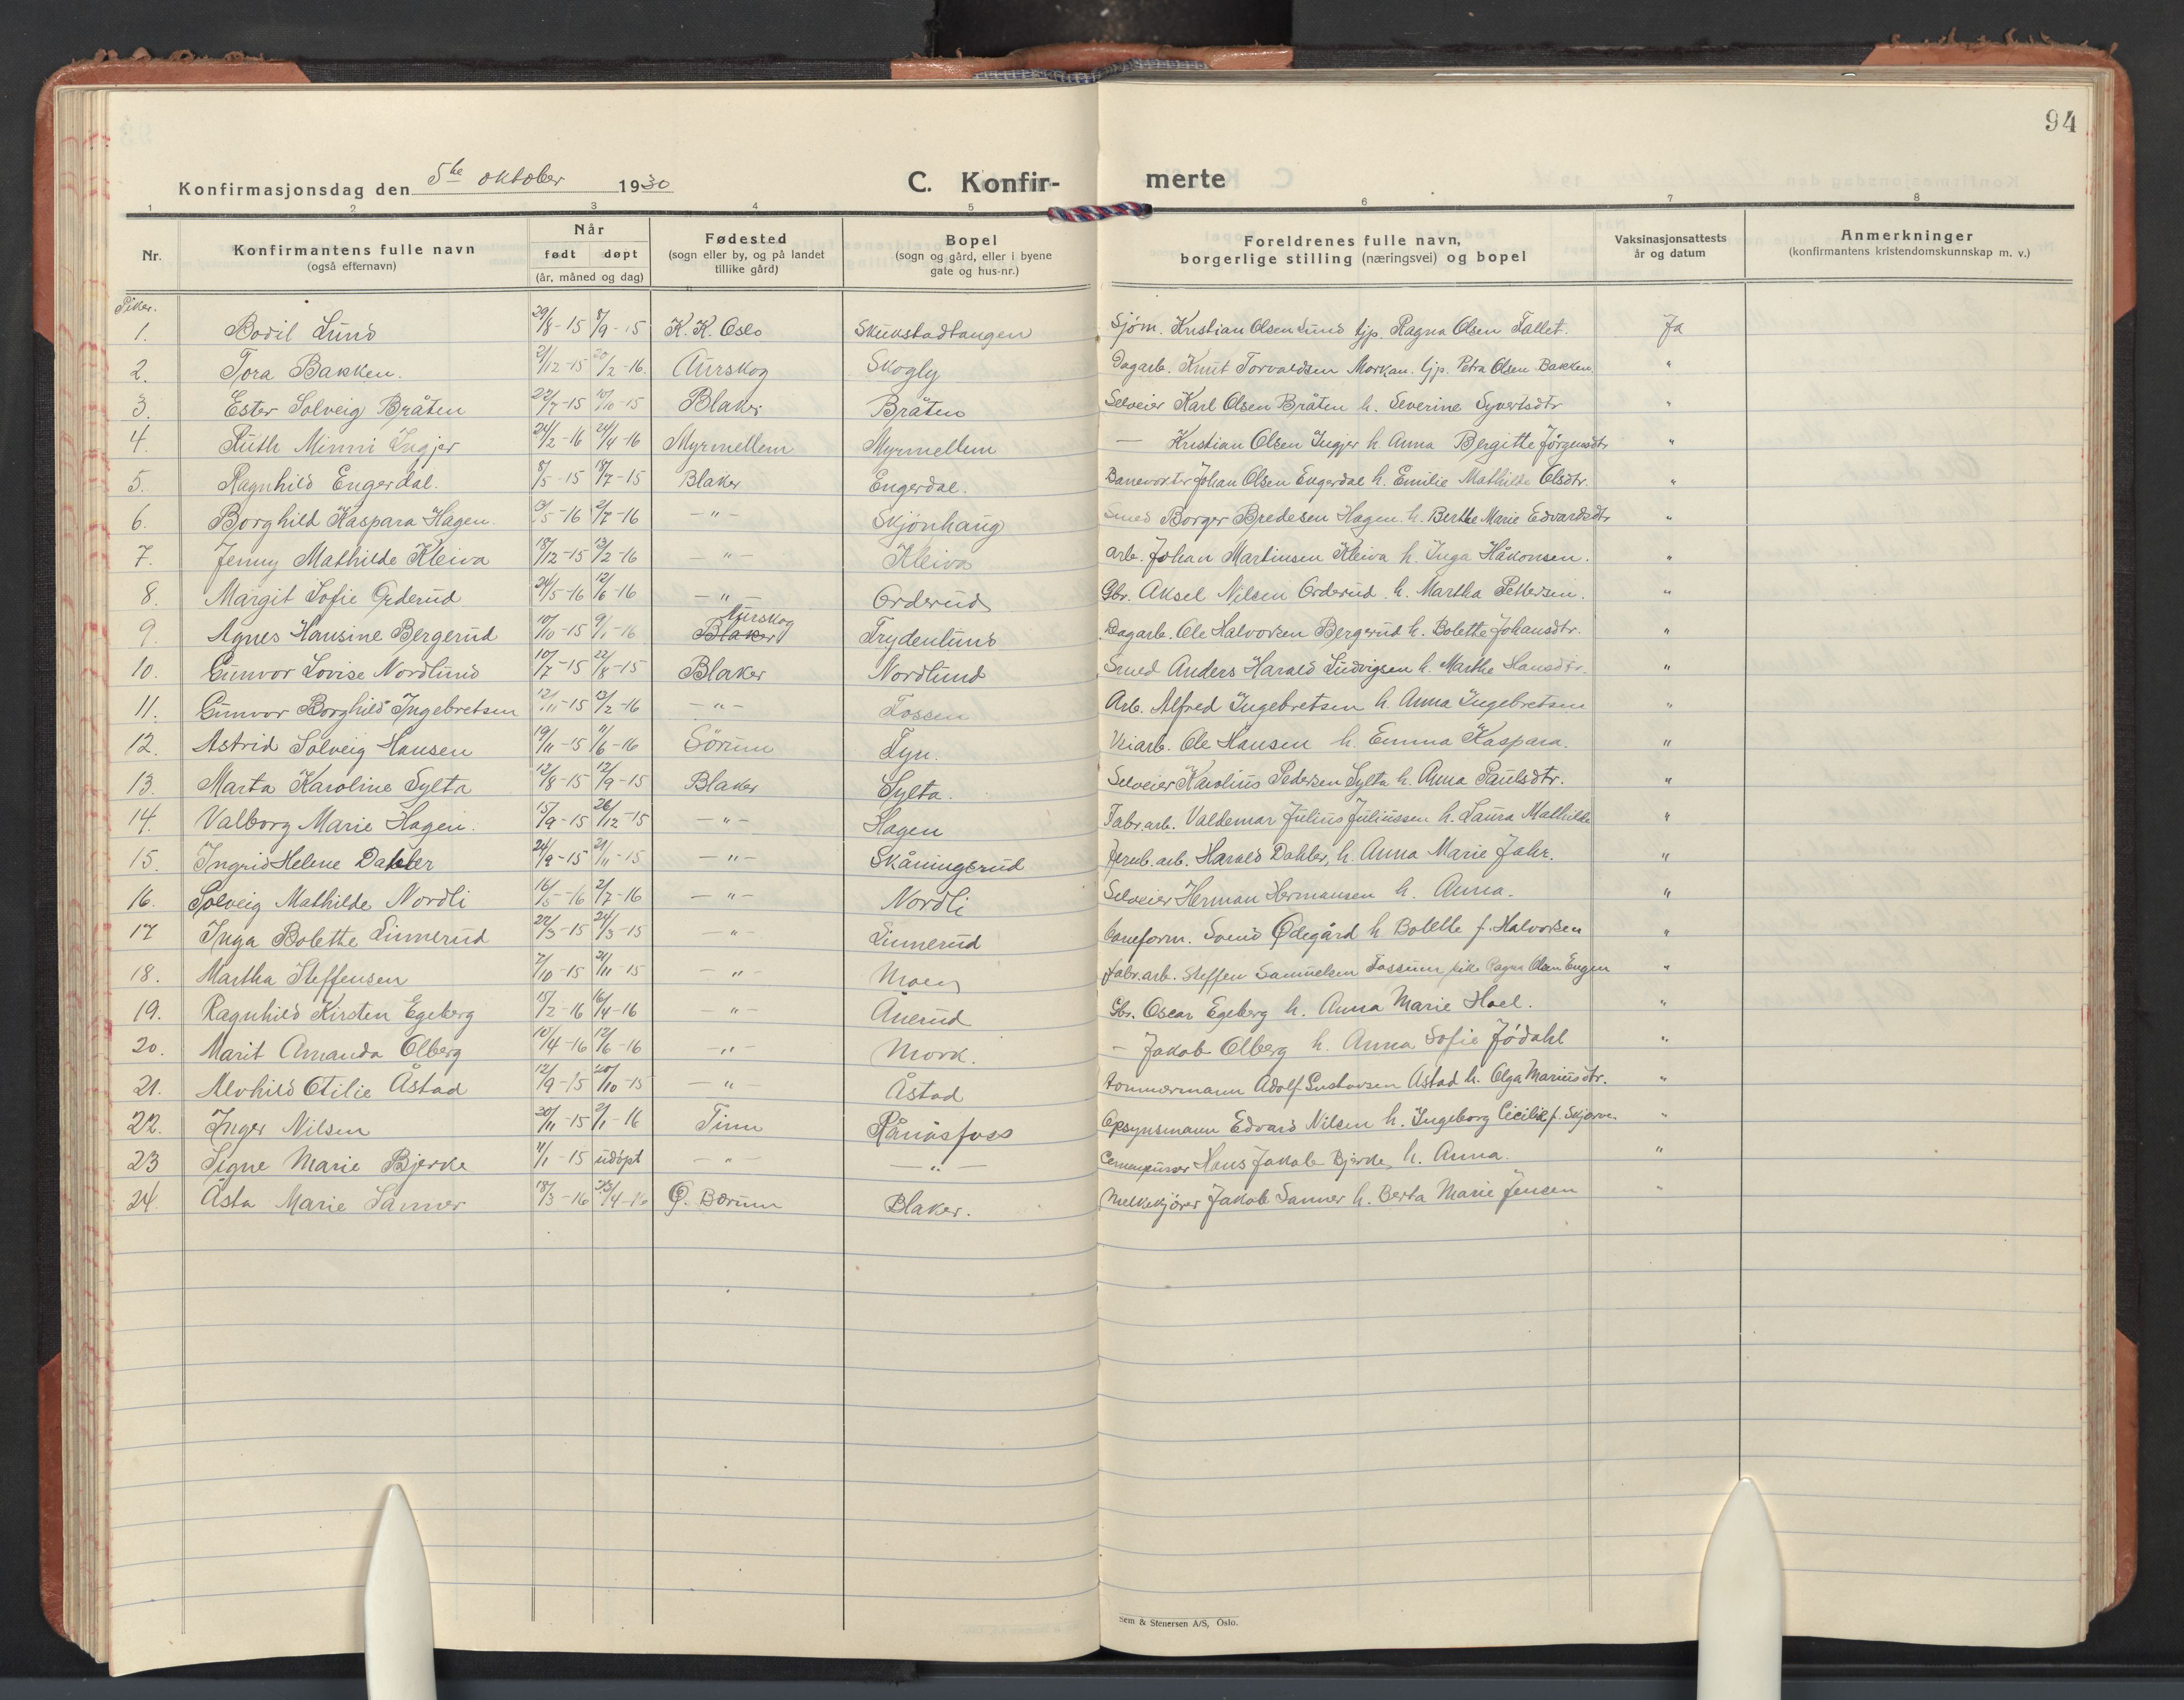 94
Konfirmasjonsdag den 5te oktober 1930 C. Konfir- merte
1 2 3 4 5 6 7 8
Nr. Konfirmantens fulle navn (også efternavn) Når født døpt (år, måned og dag) Fødested (sogn eller by, og på landet tillike gård) Bopel (sogn og gård, eller i byene gate og hus-nr.) Foreldrenes fulle navn, borgerlige stilling (næringsvei) og bopel Vaksinasjonsattests år og datum Anmerkninger (konfirmantens kristendomskunnskap m. v.)
Piker.
1. Bodil Lund 29/8-15 8/9-15 K. K. Oslo Skukstadtangen Sjøm. Kristian Olsen Lund tjp. Ragna Olsen Fallet. Ja
2. Tora Bakken. 21/12-15 20/2-16. Aurskog Skogly Dagarb. Knut Torvaldsen Morkan. tjp. Petra Olsen Bakken "
3. Ester Solveig Bråten 22/7-15 10/10-15 Blaker Bråten Selveier Karl Olsen Bråten h. Severine Syvertsdtr "
4. Ruth Minni Ingjer 24/2-16 24/4-16 Myrmellem Myrmellem — Kristian Olsen Ingjer h Anna Bergitte Jørgensdtr "
5. Ragnhild Engerdal. 8/5-15 18/7-15 Blaker Engerdal. Banevokter Johan Olsen Engerdal h. Emilie Mathilde Olsdtr. "
6. Borghild Kaspara Hagen. 5-16 2/7-16 -"- Skjønhaug Smed Borger Bredesen Hagen. h. Berthe Marie Edvardsdtr "
7. Jenny Mathilde Kleiva 18/12-15 13/2-16 -"- Kleiva Arb. Johan Martinsen Kleiva h. Inga Håkonsen. "
8. Margit Sofie Orderud 24/5-16 12/6-16 -"- Orderud Gbr. Aksel Nilsen Orderud. h. Martha Pettersen. "
9. Agnes Hansine Bergerud 10/10-15 9/1-16 Blaker Aurskog Frydenlund Dagarb. Ole Halvorsen Bergerud h. Bolette Johansdtr. "
10. Gunvor Lovise Nordlund 10/7-15 22/8-15 Blaker Nordlund Smed Anders Harald Ludvigsen h. Marthe Hansdtr. "
11. Gunvor Borghild Ingebretsen 12/11-15 13/2-16 -"- Fossen Arb. Alfred Ingebretsen h. Anna Ingebretsen "
12. Astrid Solveig Hansen 19/11-15 11/6-16 Sørum Fyn. Veiarb. Ole Hansen h. Emma Kaspara. "
13. Marta Karoline Sylta 12/8-15 12/9-15 Blaker Sylta. Selveier Karolius Pedersen Sylta h. Anna Paulsdtr. "
14. Valborg Marie Hagen. 15/9-15 26/12-15 -"- Hagen Fabr.arb. Valdemar Julius Juliussen h. Laura Mathilde "
15. Ingrid Helene Dahler 24/9-15 21/11-15 -"- Skåningsrud Jernb.arb. Harald Dahler, h. Anna Marie Jahr. "
16. Solveig Mathilde Nordli 16/5-16 2/7-16 -"- Nordli Selveier Herman Hermansen h. Anna. "
17 Inga Bolette Linnerud 22/3-15 24/3-15 -"- Linnerud Baneform. Svend Ødegård h Bolette f. Halvorsen "
18. Martha Steffensen 7/10-15 21/11-15 -"- Moen Fabr.arb. Steffen Samuelsen Fossum pike Ragna Olsen Engen "
19. Ragnhild Kirsten Egeberg 15/2-16 16/4-16 -"- Auerud Gbr. Oscar Egeberg h. Anna Marie Hoel. "
20. Marit Amanda Olberg 10/4-16 12/6-16 -"- Mork. — Jakob Olberg h. Anna Sofie Jødahl "
21. Alvhild Otilie Åstad 12/9-15 20/10-15 -"- Åstad Tømmermann Adolf Gustavsen Åstad h. Olga Mariusdtr. "
22. Inger Nilsen 20/11-15 2/1-16 Tinn Rånåsfoss Opsynsmann Edvard Nilsen h. Ingeborg Cicilie f. Skjerve. "
23 Signe Marie Bjerke 11/1-15 udøpt -"- -"- Hans Jakob Bjerke, h. Anna. "
24. Åsta Marie Sanner 18/3-16 23/4-16 Ø. Bærum Blaker. Melkekjører Jakob Sanner h. Berta Marie Jensen "
Sem & Stenersen A/S, Oslo.